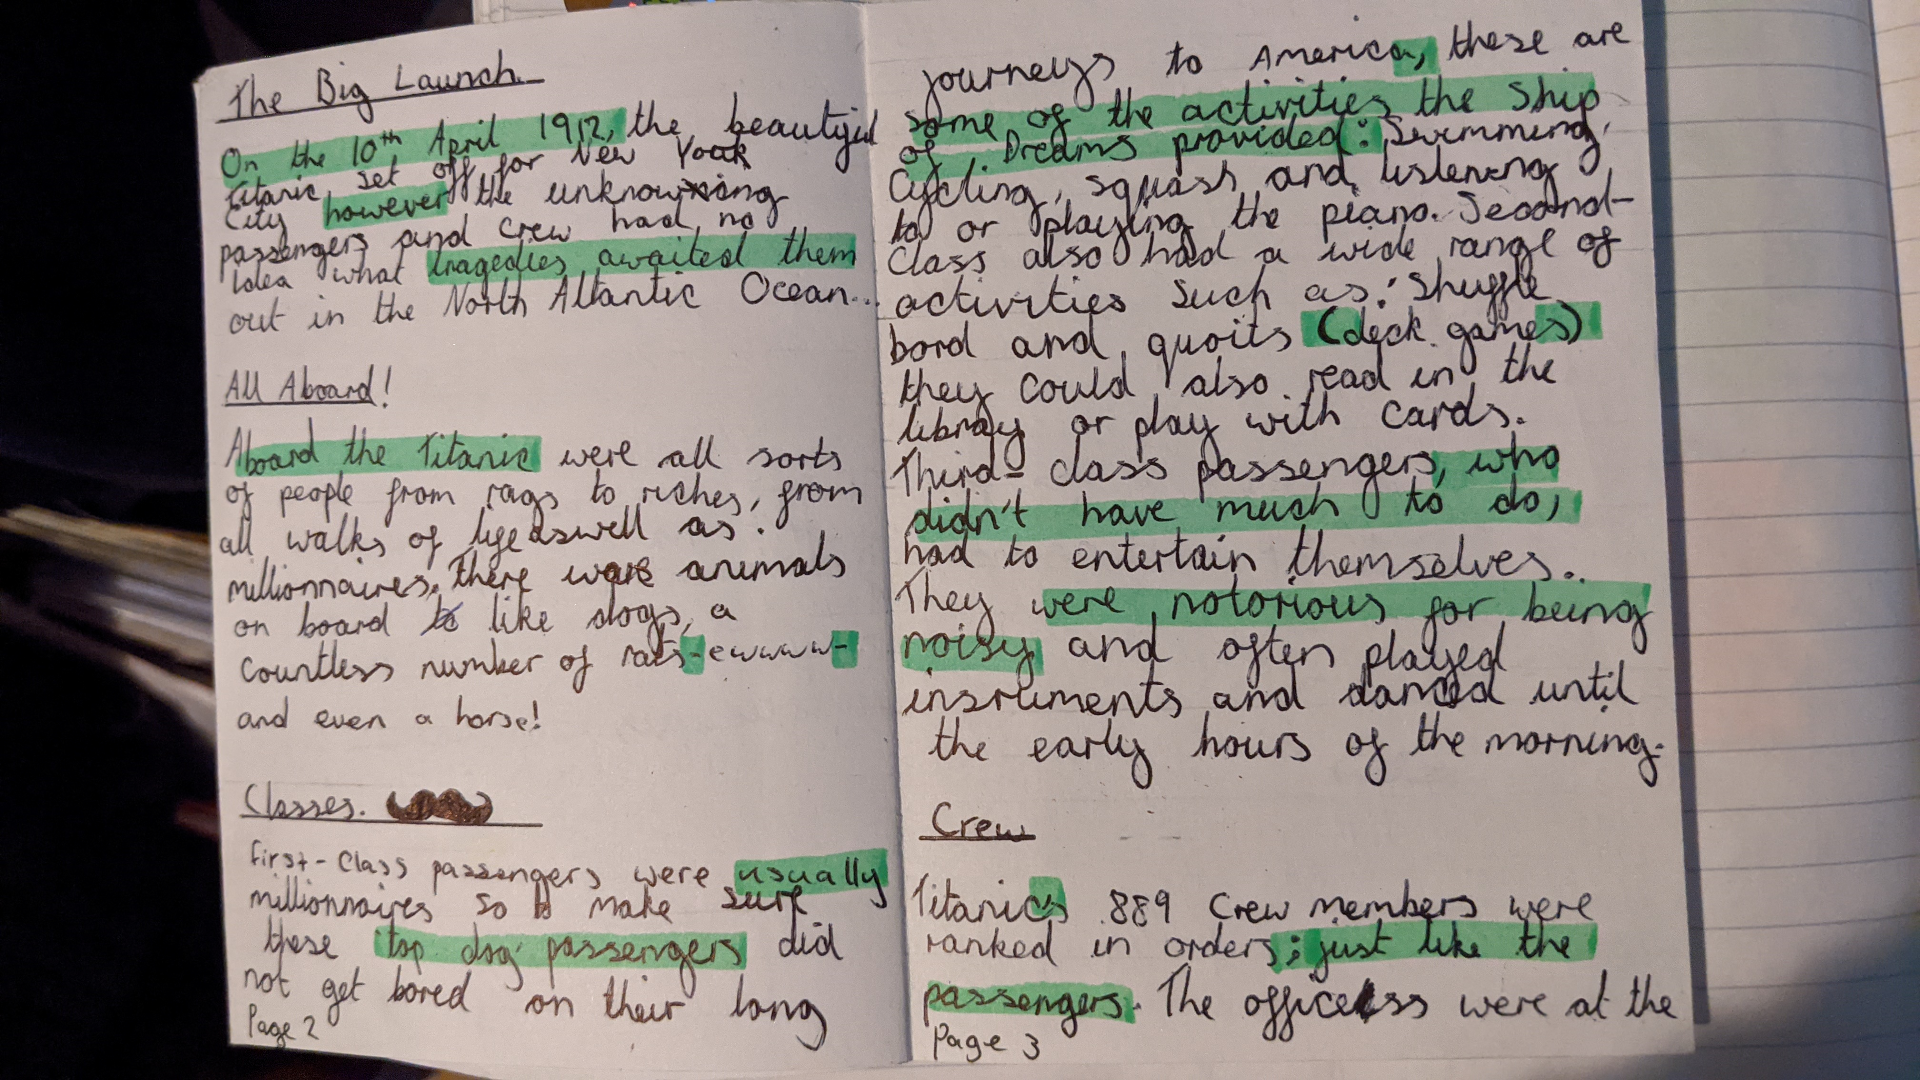 The Big Launch.
On the 10th April 1912, the beautiful
Titanic set off for New York
City however the unknowing
passengers and crew had no
idea what tragedies awaited them
out in the North Altantic Ocean...
All Aboard!
Aboard the Titanic were all sorts
of people from rags to riches, from
all walks of life aswell as
millionnaires. There were animals
on board like dogs, a
countless number of rats-ewwww-
and even a horse!
Classes.
First-Class passengers were usually
millionnaires so to make sure
these top dog passengers did
not get bored on their long
Page 2
journeys to America, these are
some of the activities the Ship
of Dreams provided: Swimming,
Cycling, squash and listening
to or playing the piano. Second-
class also had a wide range of
activities such as: Shuffle
bord and quoits (deck games)
they could also read in the
library or play with cards.
Third-class passengers, who
didn't have much to do,
had to entertain themselves.
They were notorious for being
noisy and often played
insruments and danced until
the early hours of the morning.
Crew
Titanic's 889 Crew members were
ranked in orders; just like the
passengers. The officess were at the
Page 3